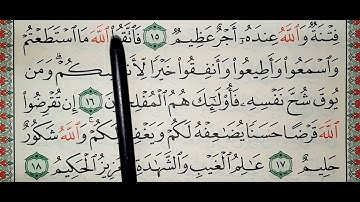 فِتْنَةٌ وَٱللَّهُ عِندَهُۥٓ أَجْرٌ عَظِيمٌ ١٥ فَٱتَّقُوا۟ ٱللَّهَ مَا ٱسْتَطَعْتُمْ
وَٱسْمَعُوا۟ وَأَطِيعُوا۟ وَأَنفِقُوا۟ خَيْرًا لِّأَنفُسِكُمْ ۗ وَمَن
يُوقَ شُحَّ نَفْسِهِۦ فَأُو۟لَٰٓئِكَ هُمُ ٱلْمُفْلِحُونَ ١٦ إِن تُقْرِضُوا۟
ٱللَّهَ قَرْضًا حَسَنًا يُضَٰعِفْهُ لَكُمْ وَيَغْفِرْ لَكُمْ ۚ وَٱللَّهُ شَكُورٌ
حَلِيمٌ ١٧ عَٰلِمُ ٱلْغَيْبِ وَٱلشَّهَٰدَةِ ٱلْعَزِيزُ ٱلْحَكِيمُ ١٨